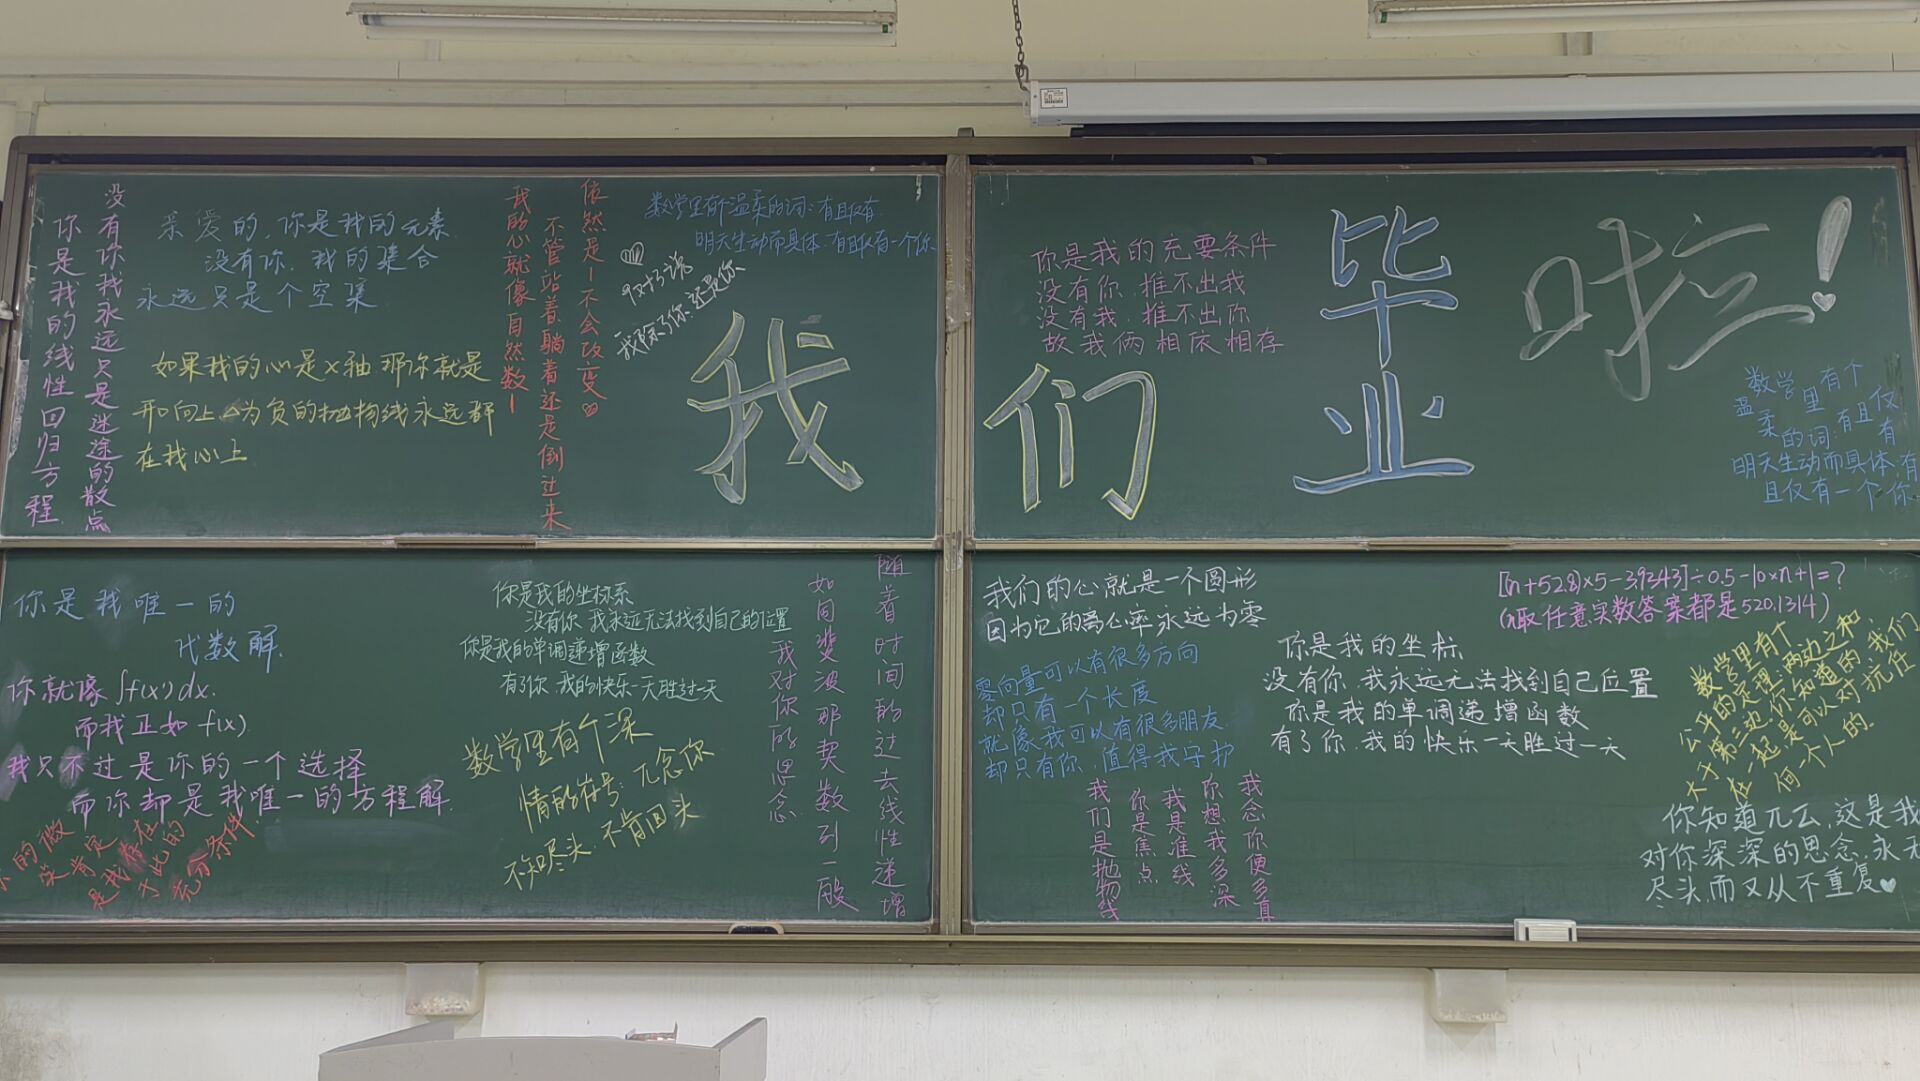 你是我的线性回归方程
没有你我永远只是迷途的散点
亲爱的,你是我的元素
没有你,我的集合
永远只是个空集
如果我的心是x轴那你就是
开口向上△为负的抛物线永远都
在我心上
我的心就像自然数1
不管站着躺着还是倒过来
依然是1不会改变♡
数学里有个温柔的词:有且仅有
明天生动而具体,有且仅有一个你
我除了你,还是你
我
们
毕
业
啦!
你是我的充要条件
没有你,推不出我
没有我,推不出你
故我俩相依相存
数学里有个
温柔的词:有且仅有
明天生动而具体,有
且仅有一个你
你是我唯一的
代数解.
你就像∫f(x)dx.
而我正如f(x)
我只不过是你的一个选择
而你却是我唯一的方程解.
的微
笑肯定存在
是我
为此的
充分条件.
你是我的坐标系
没有你,我永远无法找到自己的位置
你是我的单调递增函数
有了你,我的快乐一天胜过一天
数学里有个深
情的符号:兀念你
不知尽头,不肯回头
随着时间的过去线性递增
如同斐波那契数列一般
我对你的思念
我们的心就是一个圆形
因为它的离心率永远为零
零向量可以有很多方向
却只有一个长度
就像我可以有很多朋友
却只有你,值得我守护
我们是抛物线
你是焦点
我是准线
你想我多深
我念你便多真
[(n+52.8)×5-3.9243]÷0.5-10×n+1=?
(n取任意实数答案都是520.1314)
你是我的坐标
没有你,我永远无法找到自己位置
你是我的单调递增函数
有了你,我的快乐一天胜过一天
数学里有个
公平的定理:两边之和,
大于第三边,你知道的,我们
在一起,是可以对抗任
何一个人的.
你知道兀么,这是我
对你深深的思念,永无
尽头,而又从不重复♡